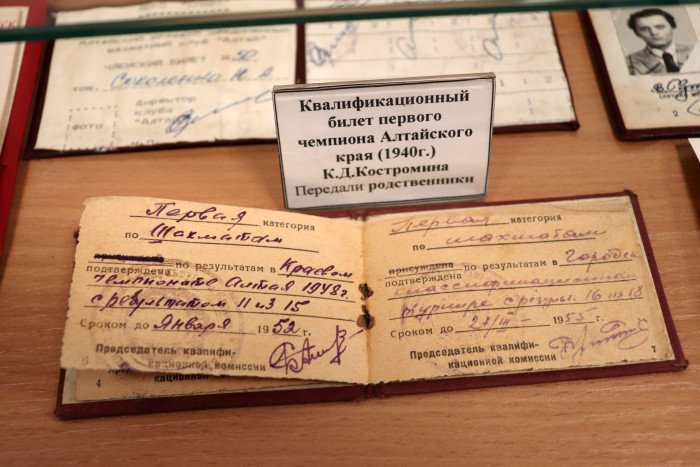 шахматный клуб "Алтай"
ЧЛЕНСКИЙ БИЛЕТ № 50
тов. Соколенко Н. А.
Директор
клуба
"Алтай"
ФОТО
2
Квалификационный
билет первого
чемпиона Алтайского
края (1940г.)
К.Д.Костромина
Передали родственники
Первая категория
по Шахматам
присуждена по результатам в Краевом
подтверждена
чемпионате Алтая 1948 г.
с результатом 11 из 15
Сроком до Января 1952 г.
Председатель квалифи-
кационной комиссии
6
4
Первая категория
по шахматам
присуждена по результатам в Городск
подтверждена
классификационном
турнире с резул. 16 из 18
Сроком до 27/III - 1953 г.
Председатель квалифи-
кационной комиссии
7